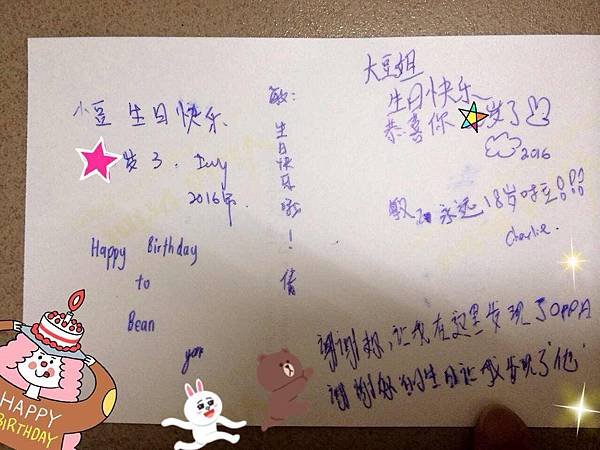 小豆 生日快乐
岁了. Judy
2016年.
Happy Birthday
to
Bean
敏：生日快乐！倩
大豆姐
生日快乐~
恭喜你 岁了
2016
敏 永远18岁哇!!!
Charlie.
谢谢 ，让我在这里发现了OPPA
谢谢你的生日让我发现了‘他’
HAPPY
BIRTHDAY